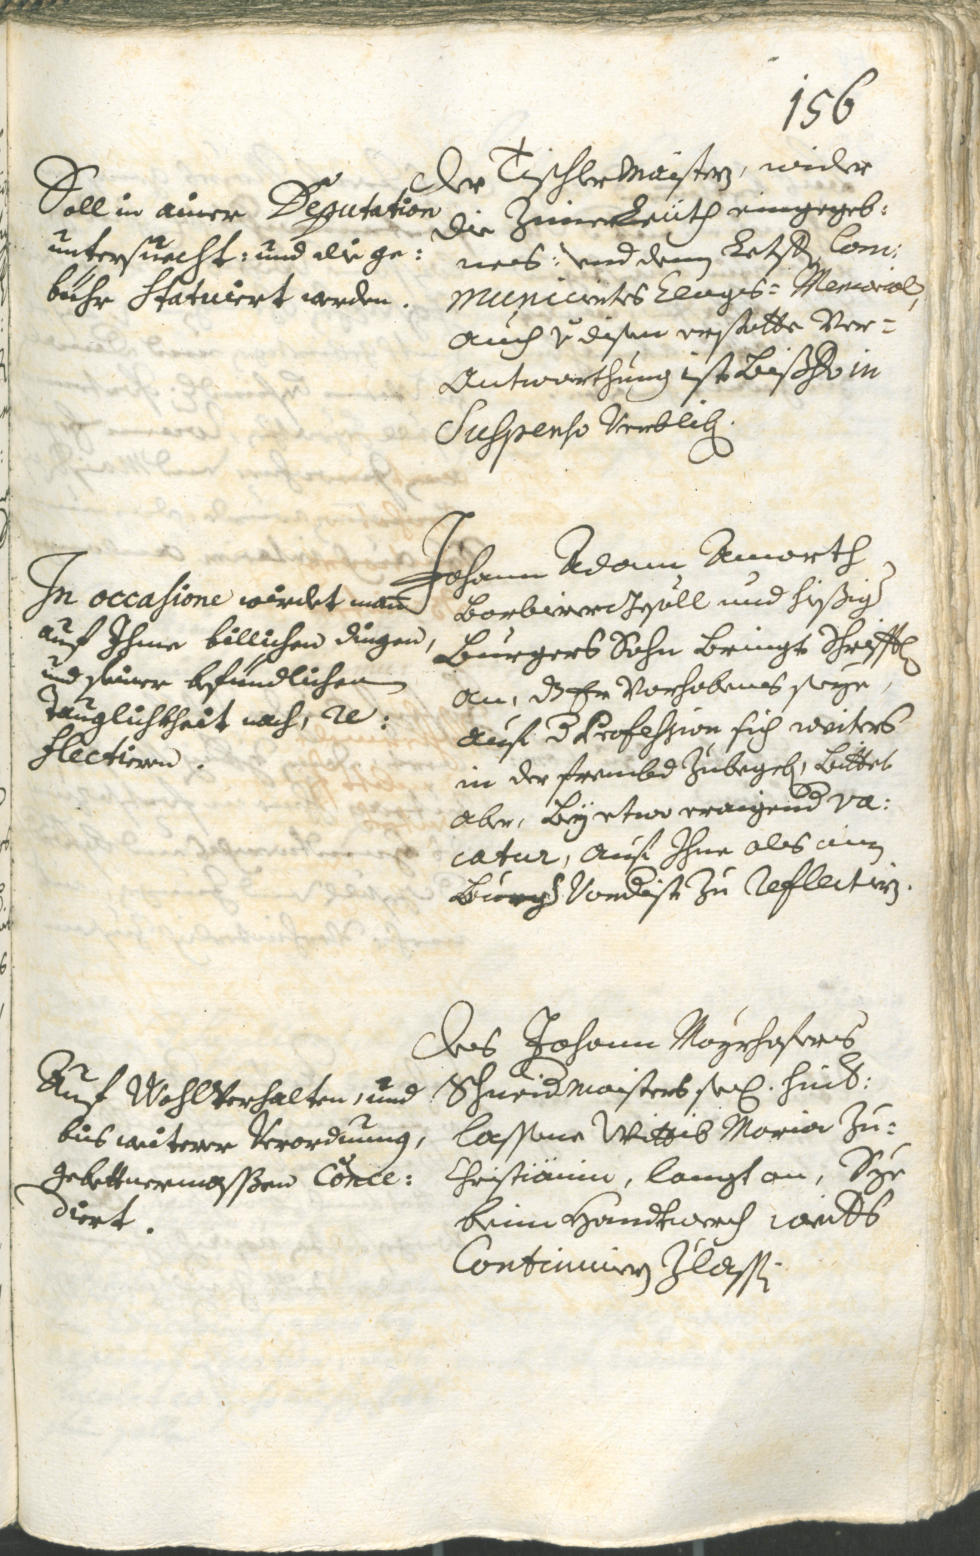 156
Soll in ainer Deputation
untersuecht: und die ge:
bühr Statuiert werden.
Der Tischlermaister, wider
die Zimerleüth eingegeb:
nes: und denen Letstern Com:
municiertes Clags= Memorial,
auch von disen erstatte Ver=
Antworthung ist bisshero in
Suspenso Verblieben.
In occasione würdet man
auf Ihme billichen dingen,
und seiner befündlichen
Tauglichkheit nach, re:
flectiern.
Johann Adam Amorth
Barbierergsöll und hießiger
Burgers Sohn bringt Schrifftlich
an, dass Er Vorhabens seye,
auf der Profession sich weiters
in die frembd Zubegeben, bittet
aber, bey etwo eraigend va:
catur, auf Ihne als ein
Burgers Kind ist Zu reflectiern.
Auf Wohlverhalten, und
bis weiterer Verordnung,
gebettnermassen Conce:
diert.
Des Johann Mayrhofers
Schneidmaisters seel. hinder:
lassne Wittib Maria Zu:
Christianin, langt an, Sye
beim Handtwerch weitters
Continuiern Zlassen.